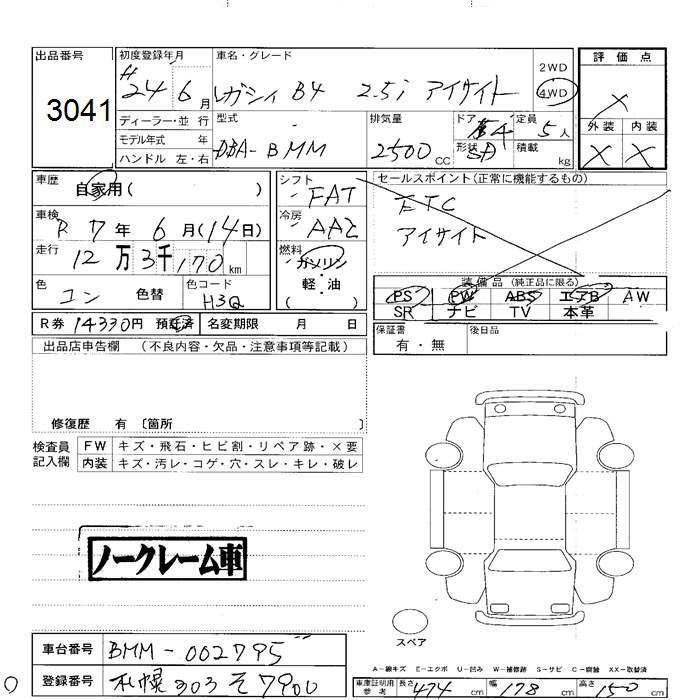 出品番号 3041
初度登録年月 H 24 6月
車名・グレード レガシィ B4 2.5i アイサイト
2WD
4WD
評価点 X
外装 内装
X X
ディーラー・並行
モデル年式 年
ハンドル 左・右
型式 DBA-BMM
排気量 2500 CC
ドア 4
形状 SD
定員 5人
積載 kg
車歴 自家用( )
車検 R 7年 6月(14日)
走行 12万3千170 km
色 コン 色替
色コード H3Q
シフト FAT
冷房 AAC
燃料 ガソリン
軽・油
( )
セールスポイント(正常に機能するもの)
ETC
アイサイト
装備品(純正品に限る)
PS PW ABS エアB AW
SR ナビ TV 本革
R券 14330円 預託済 名変期限 月 日
保証書 有・無
後日品
出品店申告欄 (不良内容・欠品・注意事項等記載)
修復歴 有 〔箇所 〕
検査員記入欄
FW キズ・飛石・ヒビ割・リペア跡・×要
内装 キズ・汚レ・コゲ・穴・スレ・キレ・破レ
ノークレーム車
スペア
車台番号 BMM-002795
登録番号 札幌 303 そ 7900
A-線キズ E-エクボ U-凹み W-補修跡 S-サビ C-腐蝕 XX-交換済
車庫証明用参考 長さ 474 cm 幅 178 cm 高さ 150 cm